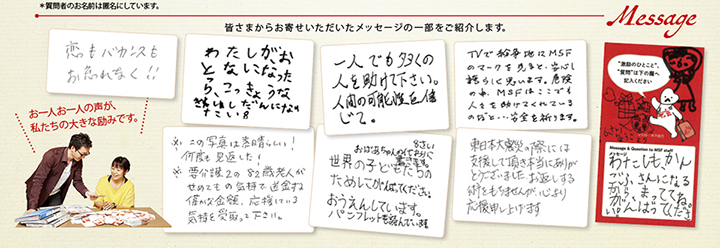 *質問者のお名前は匿名にしています。
皆さまからお寄せいただいたメッセージの一部をご紹介します。
Message
恋もバカンスも
お忘れなく!!
お一人お一人の声が、
私たちの大きな励みです。
わたしが、お
とないになった
ら、こっきょうな
き
だんになりた
さい。
一人でも多くの
人を助けて下さい。
人間の可能性を信
じて。
TVで紛争地にMSF
のマークを見ると、安心し
誇らしく思います。危険
の中、MSFはここでも
人々を助けてくれている
のだと…安全を祈ります。
※この写真は素晴らしい!
何度も見返した!
※要介護2の82歳老人が
せめてもの気持で送金する
僅かな金額、応援している
気持を受取って下さい。
8さい
おばあちゃんの代わりに
書きます。
世界の子どもたちの
ためにがんばってください。
おうえんしています。
パンフレットも読んでいます
東日本大震災の際には
支援して頂き本当にありが
とうございました お返しする
術をもちませんが、心より
応援申し上げます
"激励のひとこと"、
"質問"は下の欄へ
記入ください
Message & Question to MSF staff
メッセージ
わたしも、かん
ごしさんになる
から、まっててね。
がんばってくださ
い。